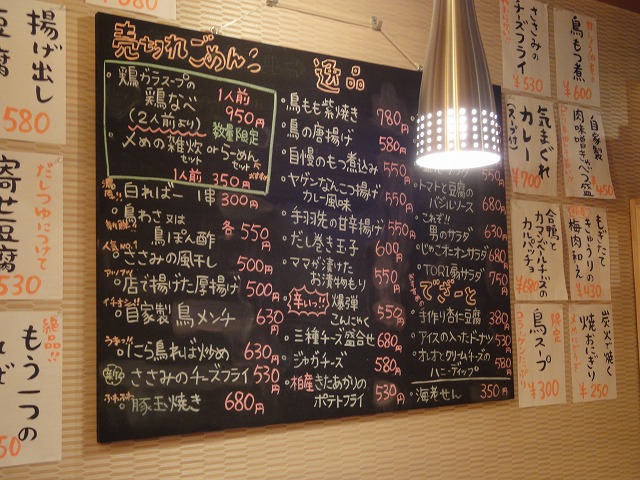 揚げ出し
580
だしつゆにつけて
寄せ豆腐
530
絶品!!
もう一つの
50
売切れごめん
逸品
鶏ガラスープの
鶏なべ
1人前
950円
(2人前より)
数量限定
〆めの雑炊 or らーめん
セット
セット
1人前 350円
白ればー 1串 300円
鳥わさ 又は
鳥ぽん酢
各 550円
人気No.1
ささみの風干し 500円
アツアツ
店で揚げた厚揚げ 500円
イチオシ!!
自家製 鳥メンチ 630円
うまっ!!
にら鳥れば炒め 630円
ささみのチーズフライ 530円
ふわふわ
豚玉焼き 680円
鳥もも紫焼き 780円
鳥の唐揚げ 580円
自慢のもつ煮込み 550円
ヤゲンなんこつ揚げ 550円
カレー風味
手羽先の甘辛揚げ 550円
だし巻き玉子 600円
ママが漬けた
お漬物もり 550円
辛いっ!! 爆弾
こんにゃく 450円
三種チーズ盛合せ 680円
ジャガチーズ 580円
柏産きたあかりの
ポテトフライ 530円
550円
トマトと豆腐の
バジルソース 680円
これぞ!!
男のサラダ 630円
じゃこオニオンサラダ 680円
TORI扇サラダ 750円
でざーと
手作り杏仁豆腐 380円
アイスの入ったドーナツ 530円
オレオとクリームチーズの
ハニーディップ 580円
海老せん 350円
ささみの
チーズフライ
¥530
鳥もつ煮
¥600
気まぐれ
カレー
(スープ付)
¥700
自家製
肉味噌きゃべつ盛
¥450
合鴨と
カマンベールチーズの
カルパッチョ
¥680
もぎたて
きゅうりの
梅肉和え
¥430
限定
鳥スープ
コラーゲンたっぷり
¥300
炭火で焼く
焼おにぎり
¥250